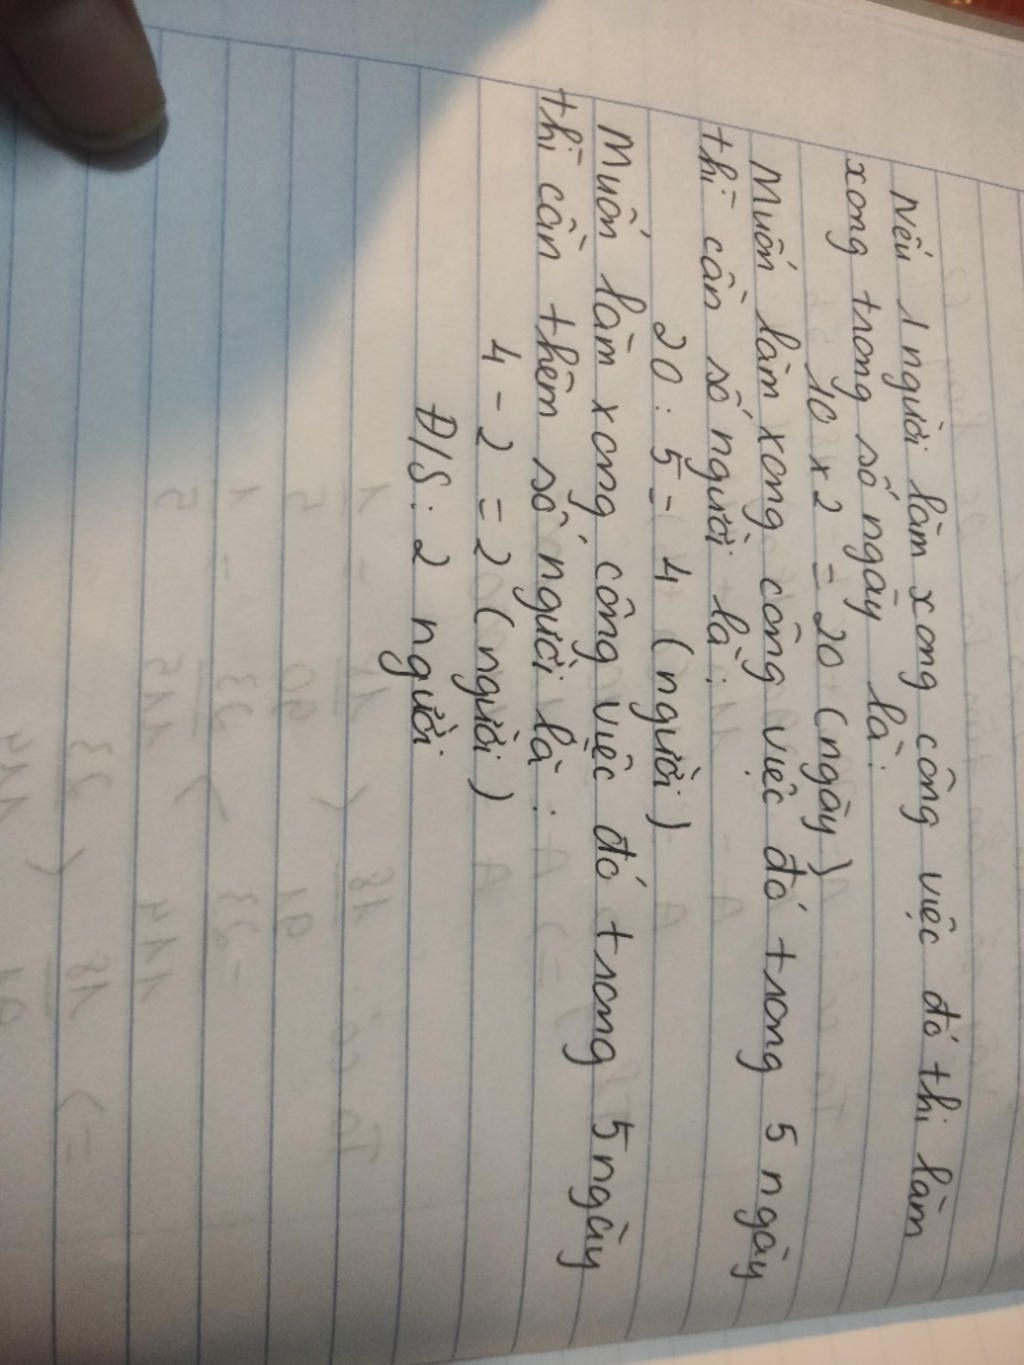 Nếu 1 người làm xong công việc đó thì làm
xong trong số ngày là:
10 x 2 = 20 (ngày)
Muốn làm xong công việc đó trong 5 ngày
thì cần số người là:
20 : 5 = 4 (người)
Muốn làm xong công việc đó trong 5 ngày
thì cần thêm số người là:
4 - 2 = 2 (người)
Đ/S: 2 người